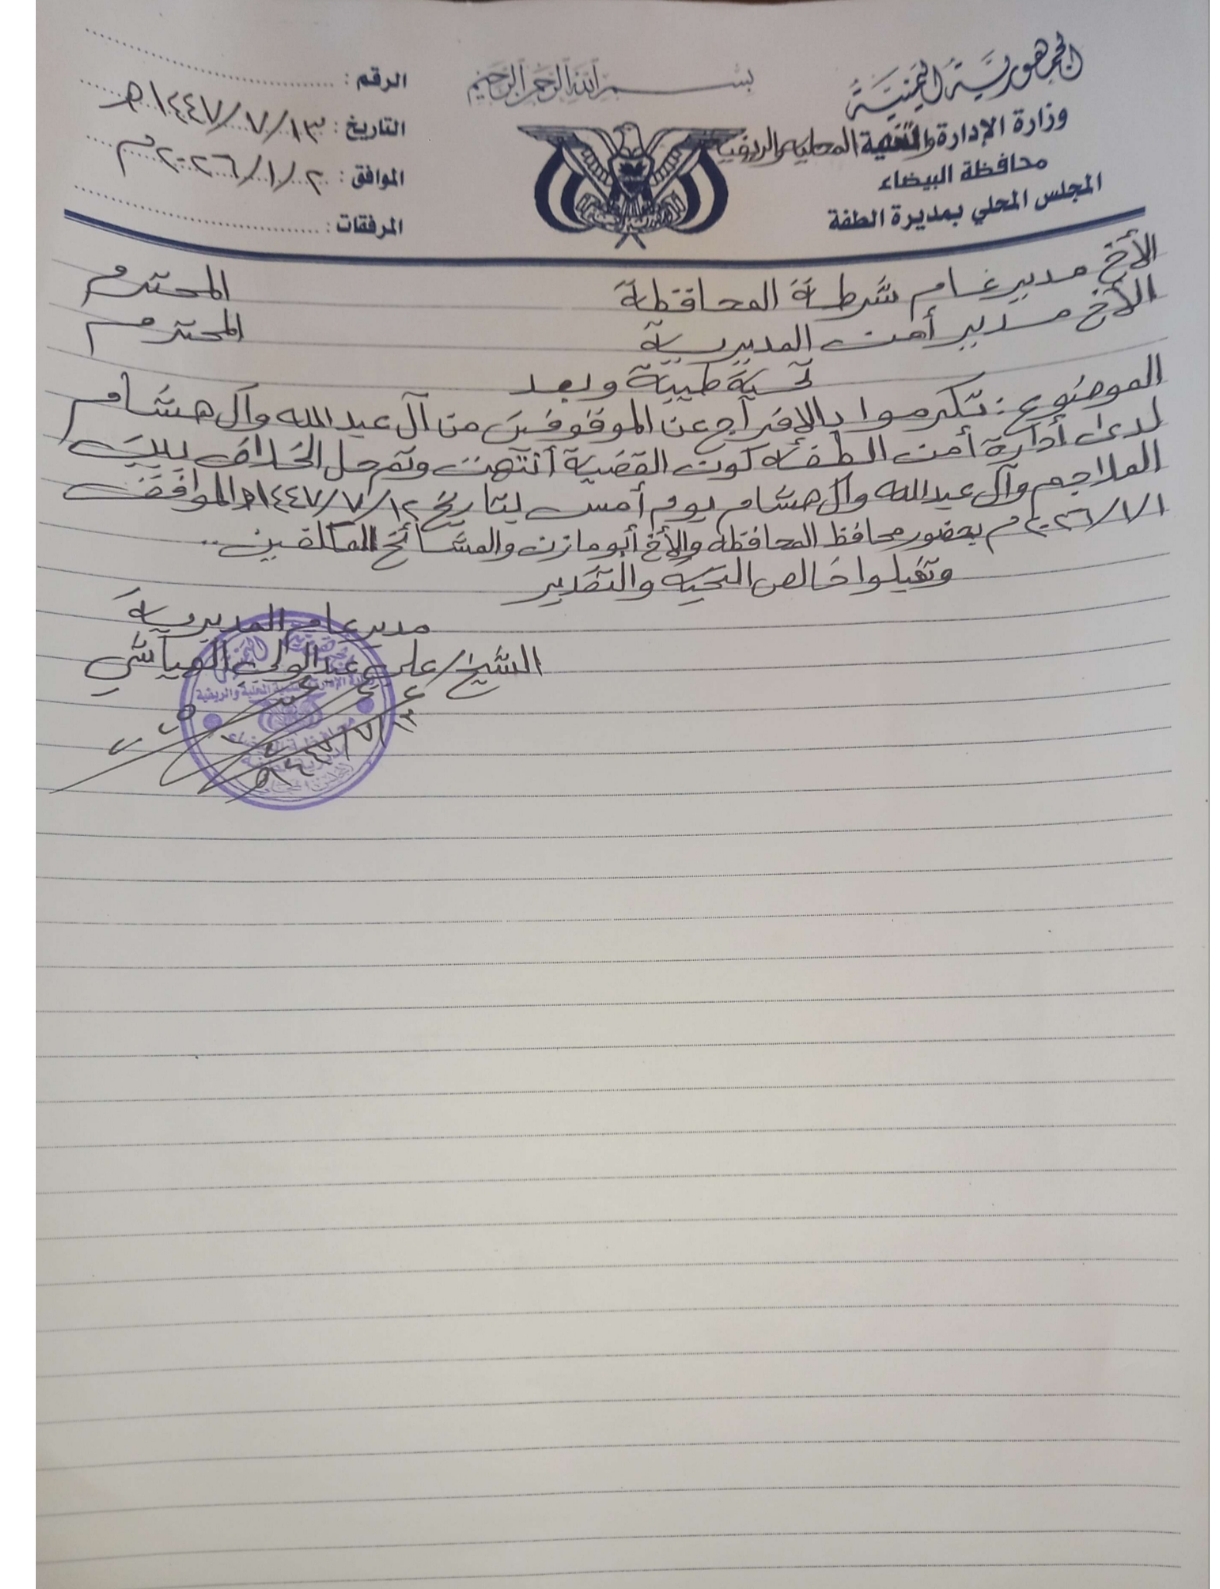 الجمهورية اليمنية
وزارة الإدارة والتنمية المحلية والريفية
محافظة البيضاء
المجلس المحلي بمديرة الطفة
بسم الله الرحمن الرحيم
الرقم :
التاريخ : ١٤٤٧/٧/١٣هـ
الموافق : ٢٠٢٦/١/٢م
المرفقات :
الأخ مدير عام شرطة المحافظة المحترم
الأخ مدير أمن المديرية المحترم
تحية طيبة وبعد
الموضوع : تكرموا بالافراج عن الموقوفين من آل عبدالله وآل هشام
لدى أدارة أمن الطفة كون القضية أنتهت وتم حل الخلاف بين
الملاجم وآل عبدالله وآل هشام يوم أمس بتاريخ ١٤٤٧/٧/١٢هـ الموافق
٢٠٢٦/١/١م بحضور محافظ المحافظة والأخ أبو مازن والمشائخ المكلفين..
وتقبلوا خالص التحية والتقدير
مدير عام المديرية
الشيخ/ علي عبدالولي الهياشي